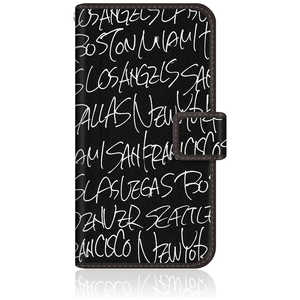 LOSANGELS
BOSTON MIAMI
LOSANGELS SA
DALLAS NEWYOR
AMI SANFRANCISCO
LASVEGAS BO
DENVER SEATTLE
RANCISCO NEWYOR